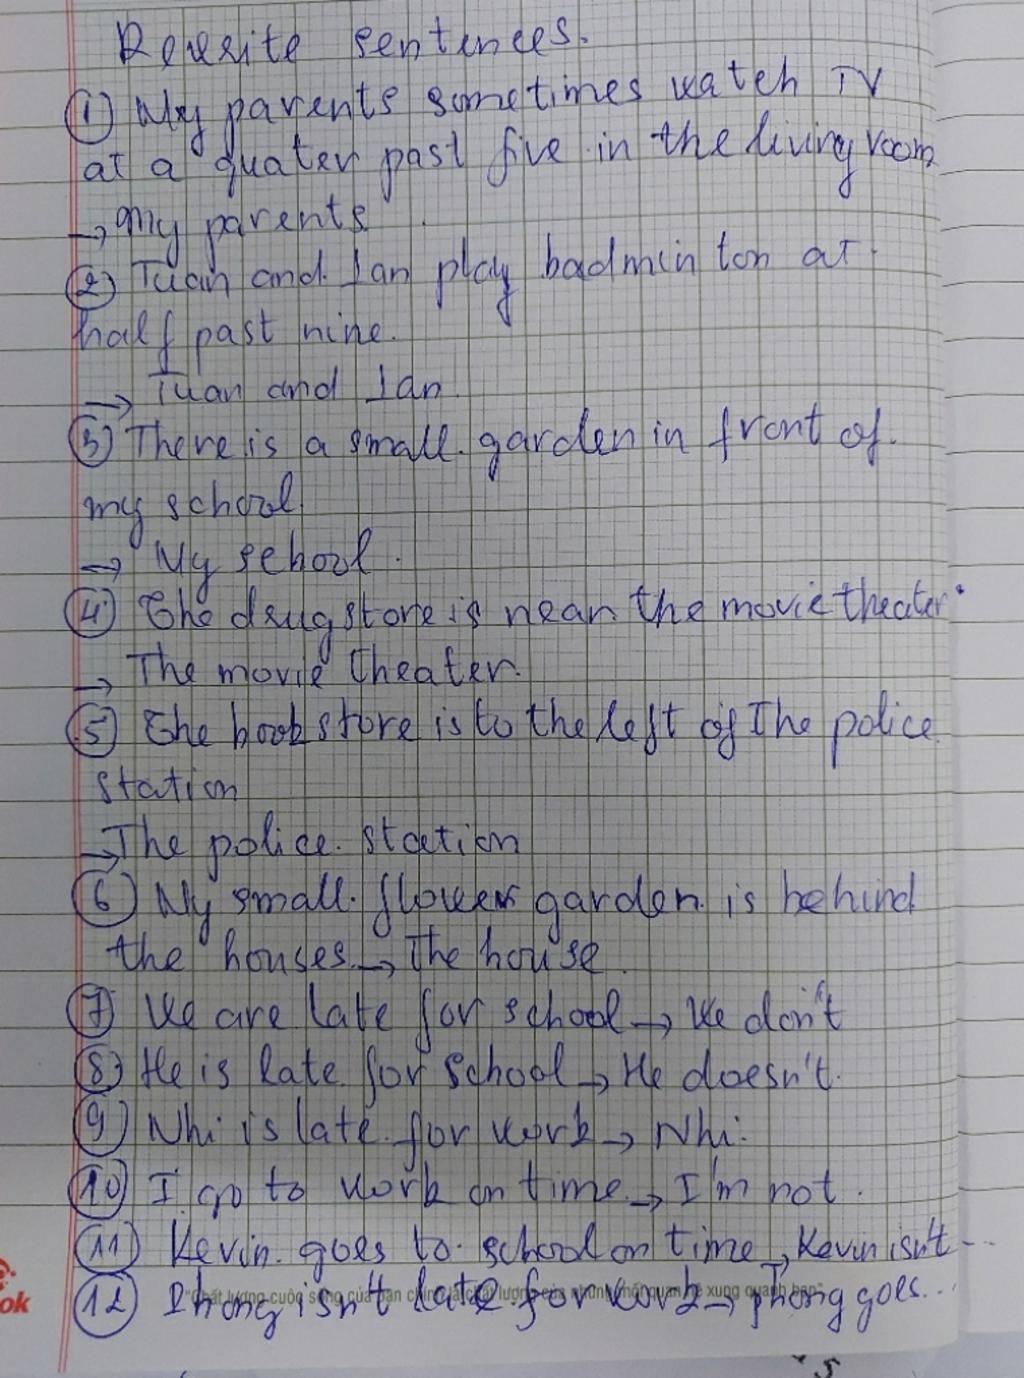 Rewrite sentences.
① My parents sometimes watch TV
at a quater past five in the living room
→ My parents
② Tuan and Lan play badminton at
half past nine.
→ Tuan and Lan
③ There is a small garden in front of
my school
→ My school.
④ The drugstore is near the movie theater.
→ The movie theater.
⑤ The bookstore is to the left of The police
station
→ The police station
⑥ My small flower garden is behind
the houses → The house
⑦ We are late for school → We don't
⑧ He is late for school → He doesn't.
⑨ Nhi is late for work → Nhi.
⑩ I go to work on time → I'm not.
⑪ Kevin goes to school on time → Kevin isn't ...
⑫ Phong isn't late for work → Phong goes...
ok